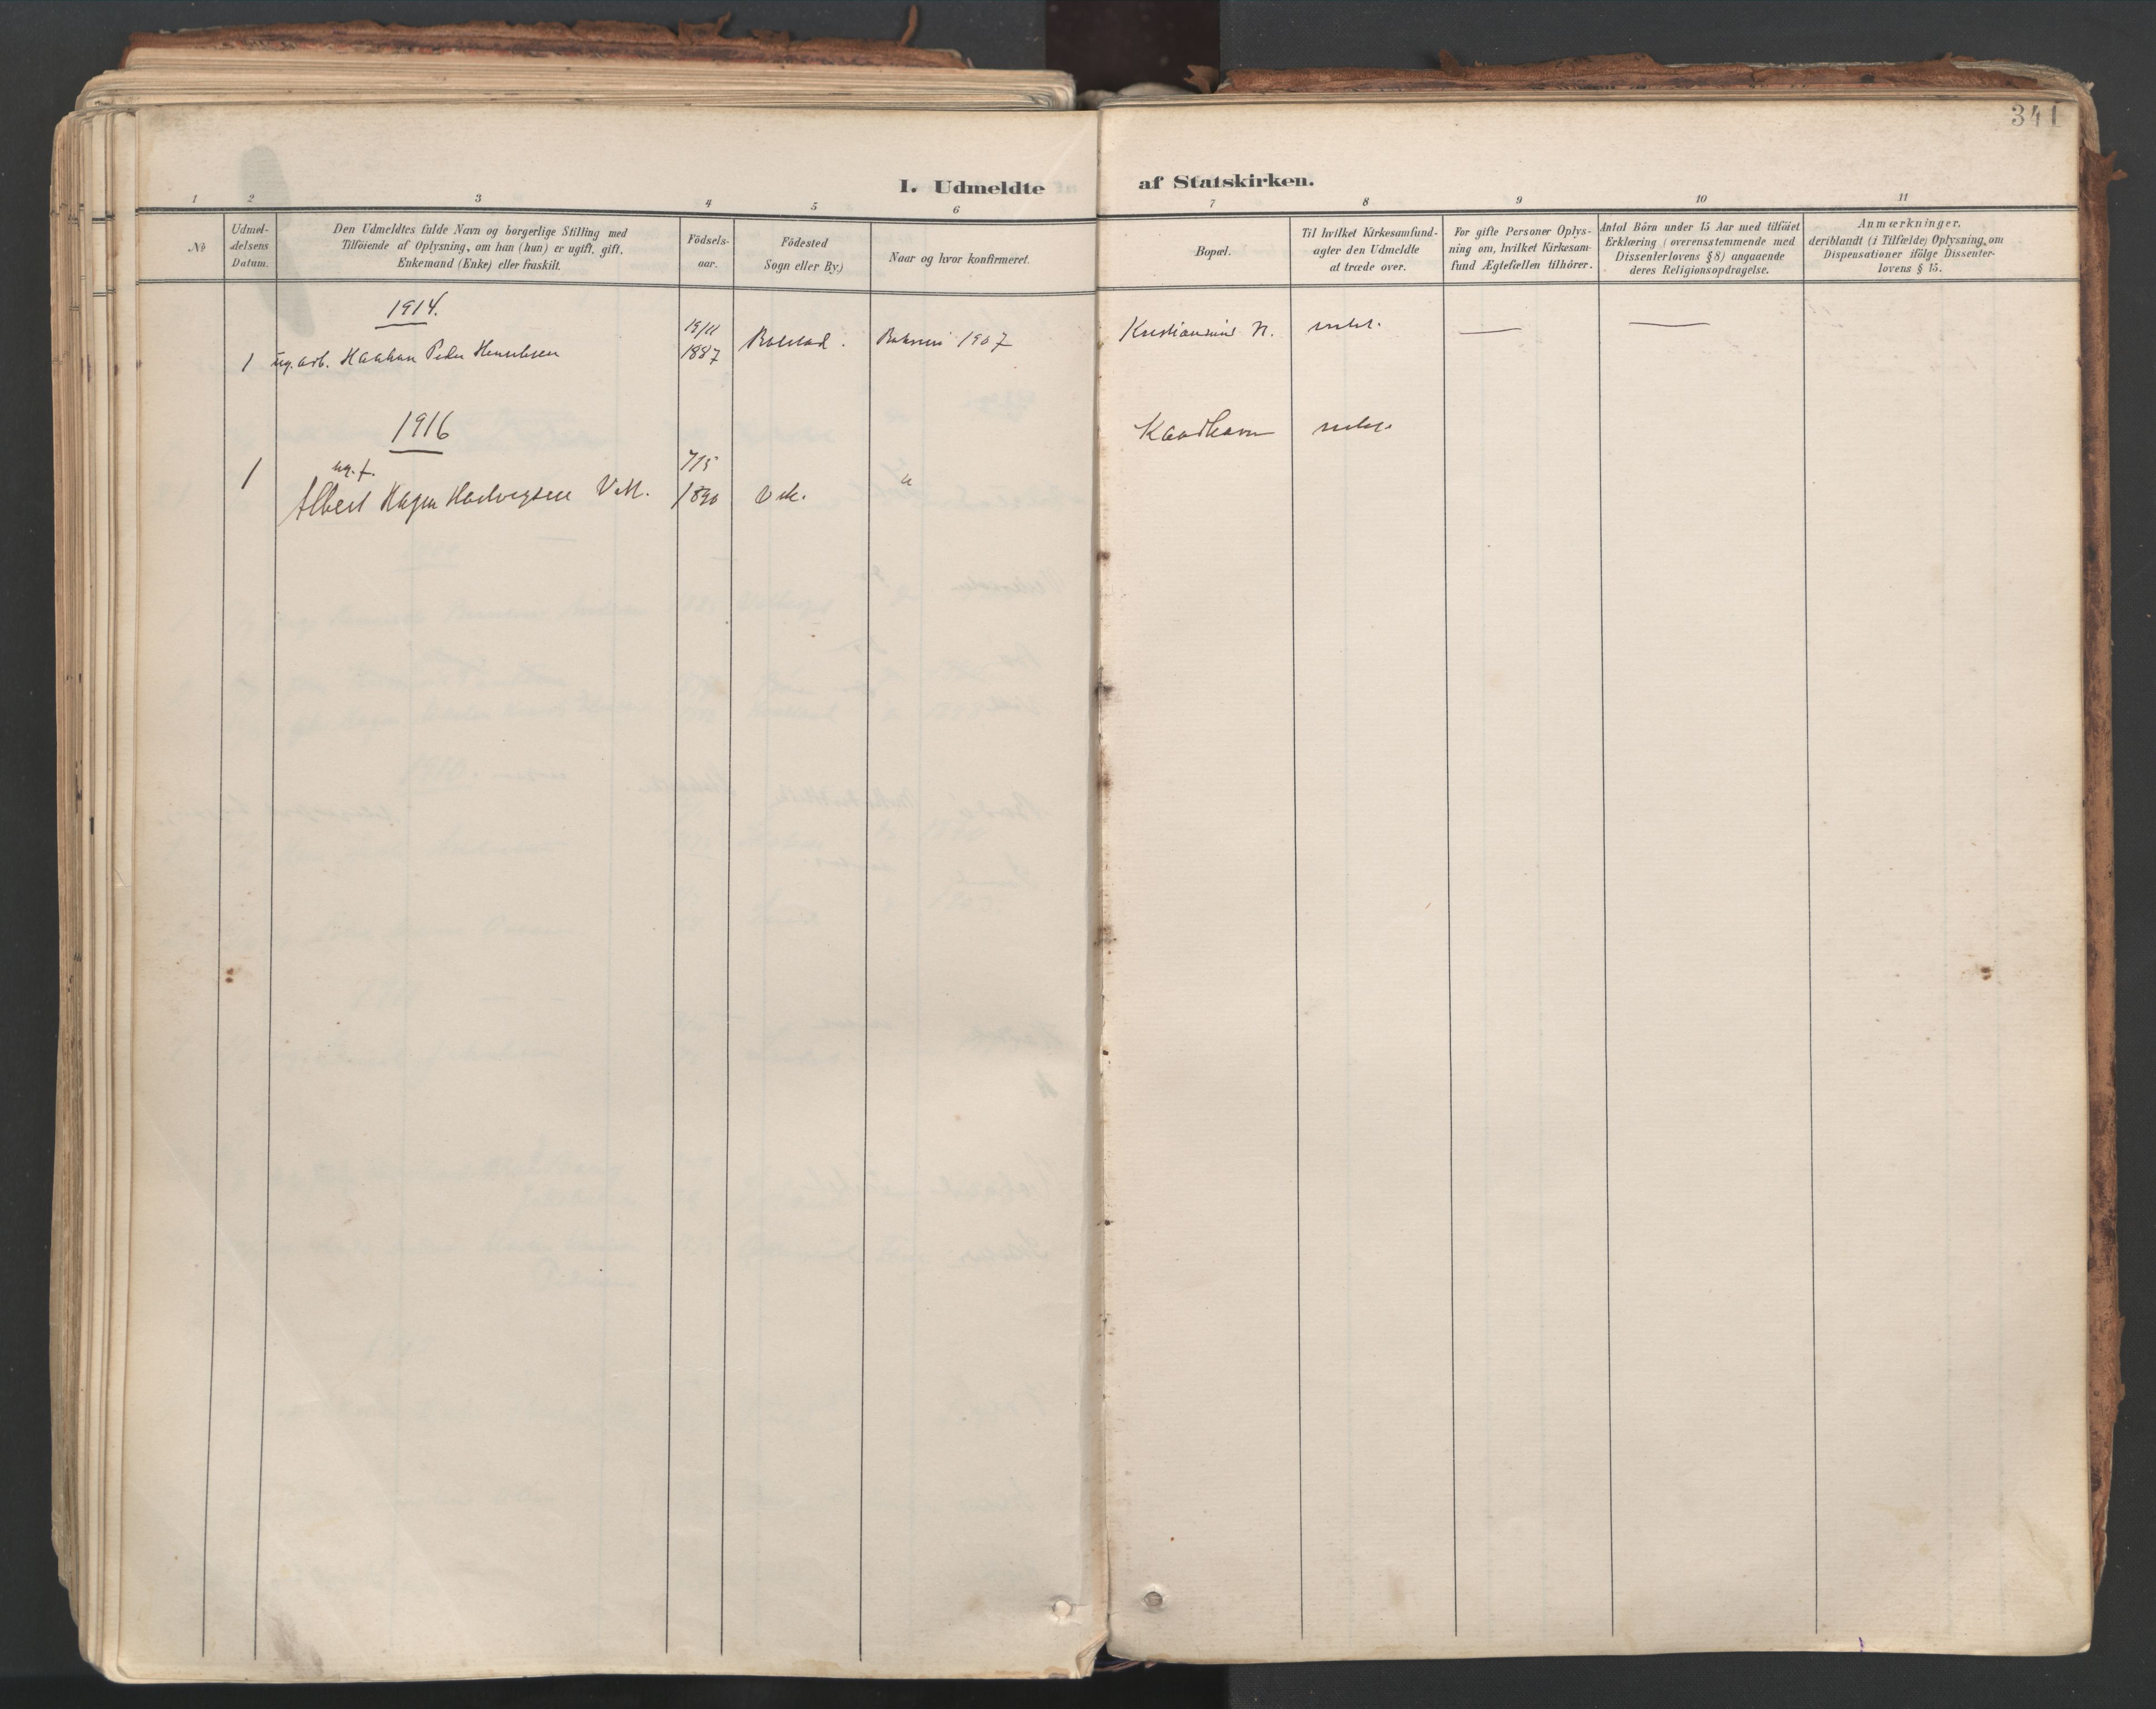 341
I. Udmeldte af Statskirken.
1 2 3 4 5 6 7 8 9 10 11
No
Udmel-
delsens
Datum.
Den Udmeldtes fulde Navn og borgerlige Stilling med
Tilföiende af Oplysning, om han (hun) er ugift, gift,
Enkemand (Enke) eller fraskilt.
Födsels-
aar.
Födested
Sogn eller By)
Naar og hvor konfirmeret.
Bopæl.
Til hvilket Kirkesamfund-
agter den Udmeldte
at træde over.
For gifte Personer Oplys-
ning om, hvilket Kirkesam-
fund Ægtefællen tilhörer.
Antal Börn under 15 Aar med tilföiet
Erklæring (overensstemmende med
Dissenterlovens § 8) angaaende
deres Religionsopdragelse.
Anmærkninger,
deriblandt (i Tilfælde) Oplysning om
Dispensationer ifölge Dissenter-
lovens § 15.
1914.
1 ug. arb. Haakon Peder Henriksen
19/11
1887
1907
Kristiansund N.
1916
1
ug. f.
Albert Hagen Hartvigsen Vik.
7/5
1890
Vik.
"